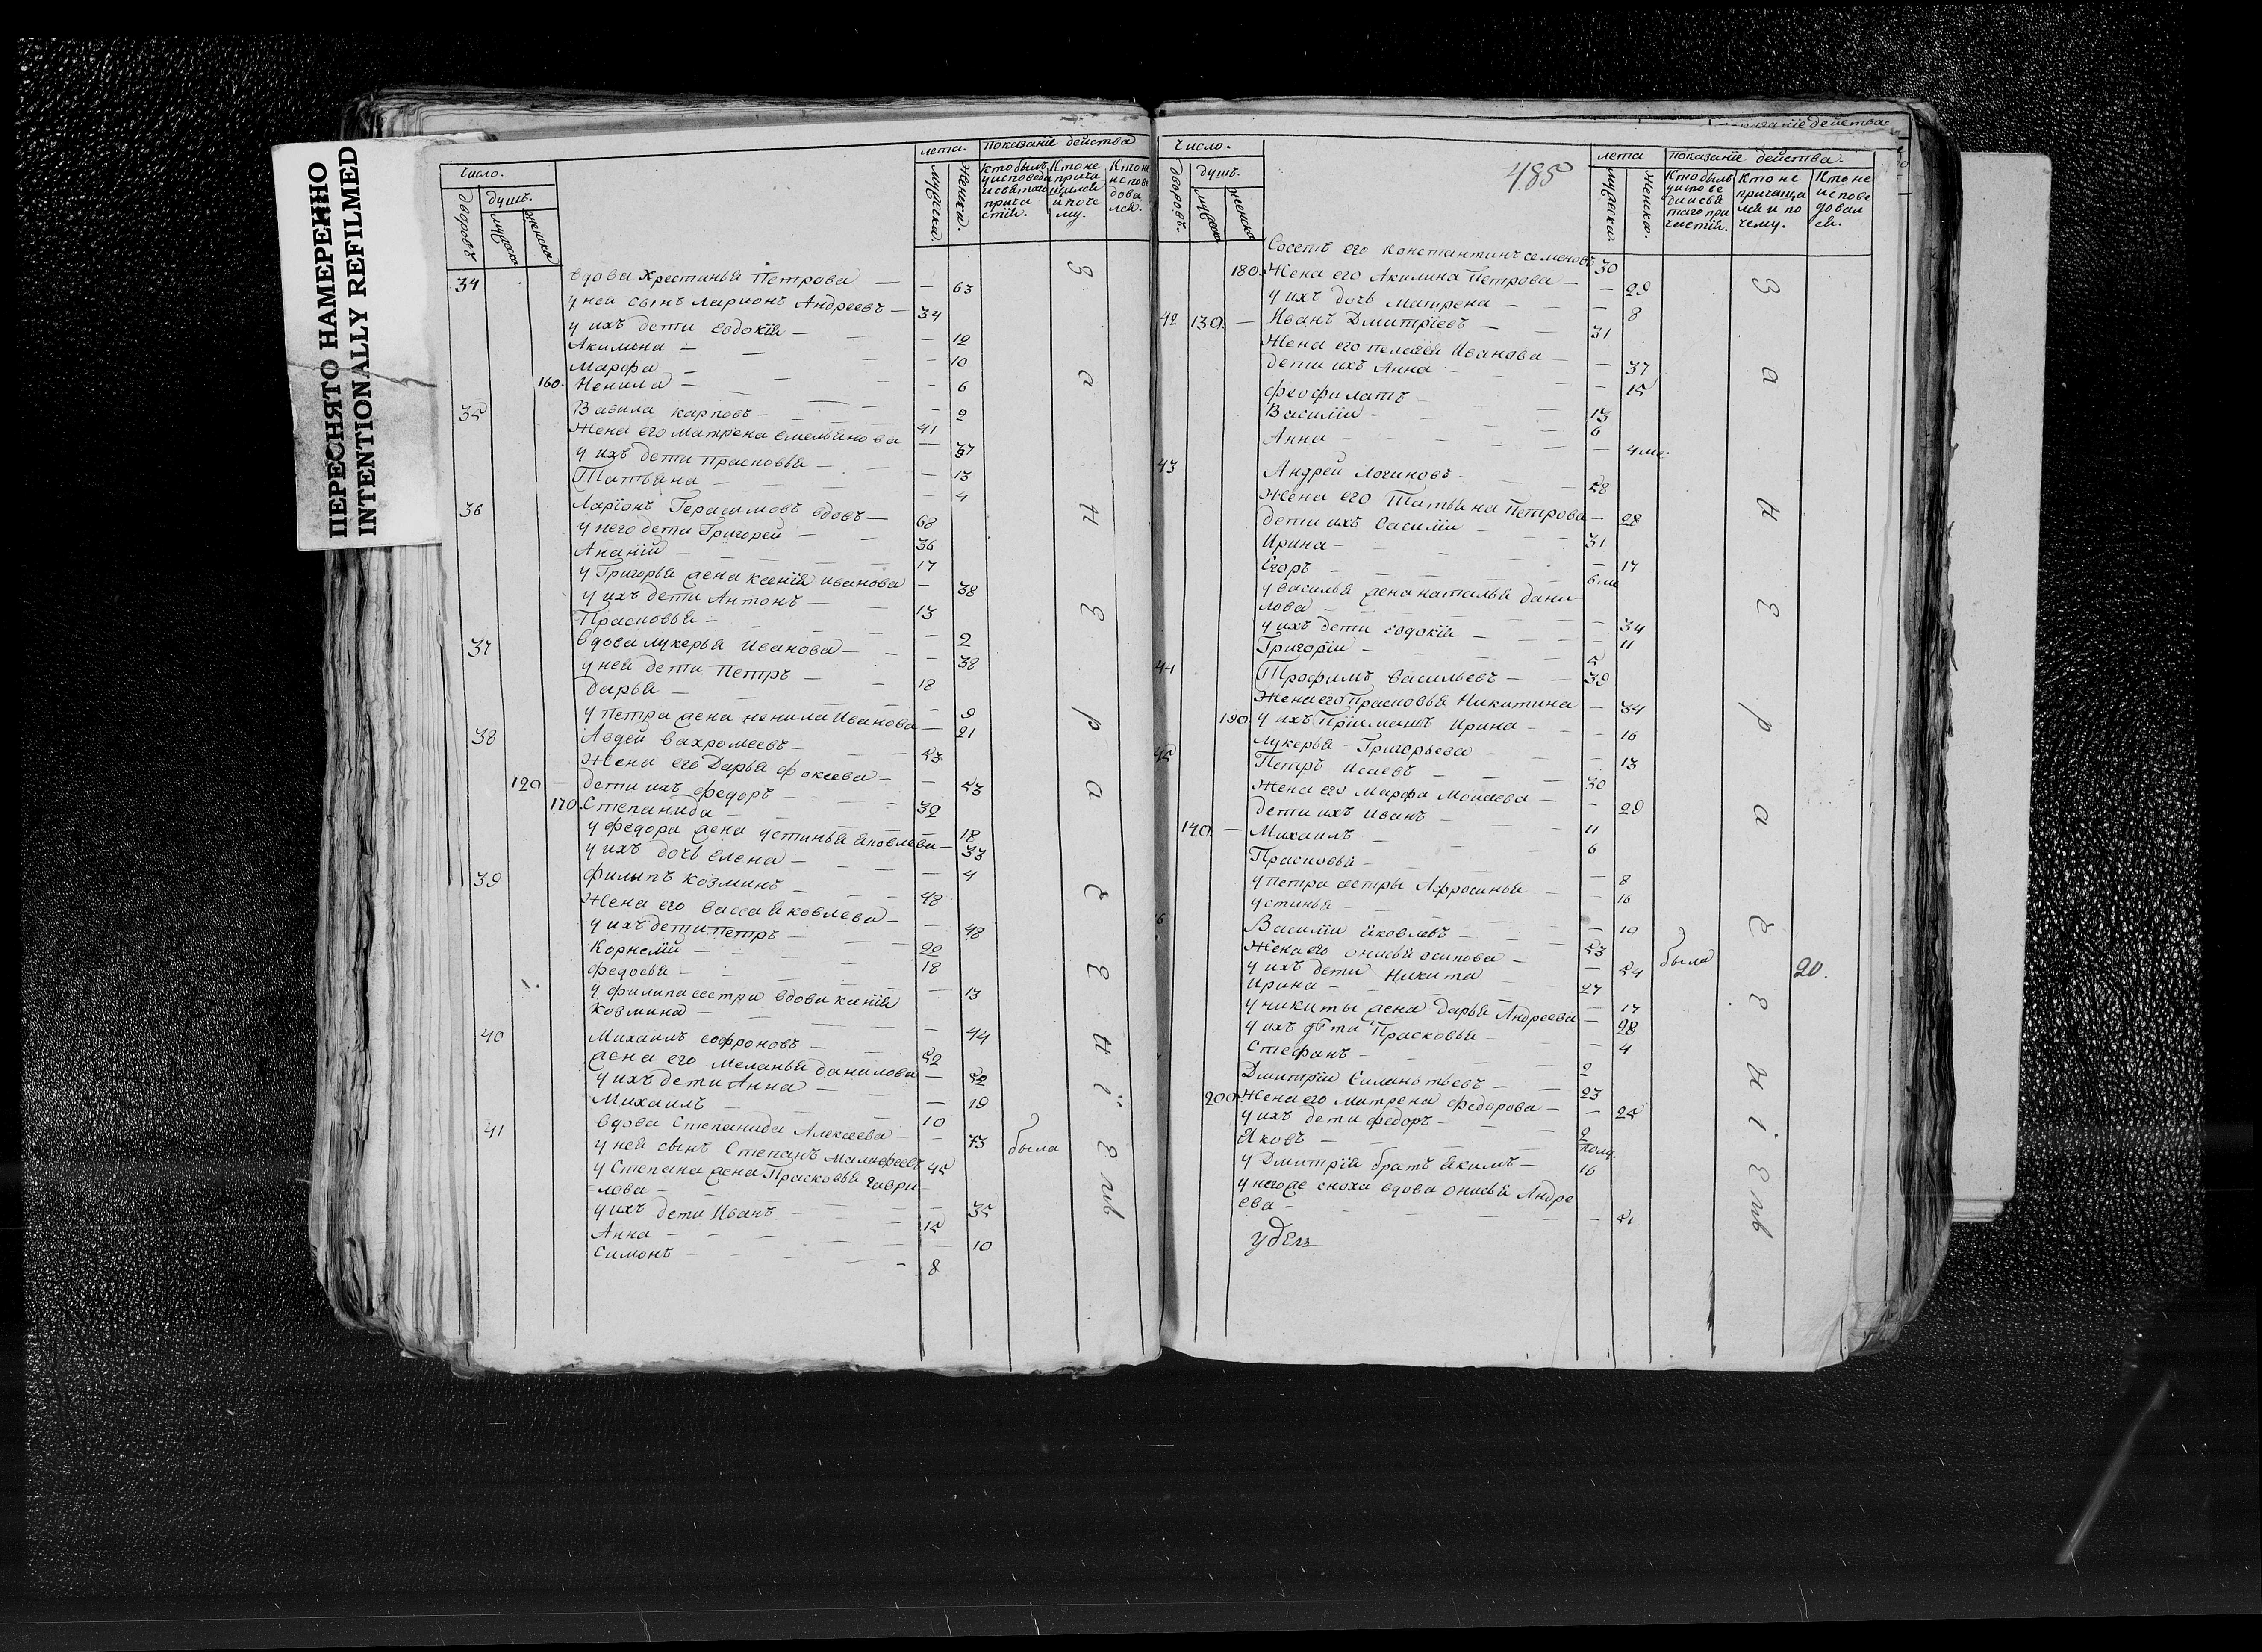 ПЕРЕСНЯТО НАМЕРЕННО
INTENTIONALLY REFILMED
Число.
дворовъ
душъ.
мужска
женска
лета.
мужска.
Женска.
Показанїе действа
Кто былъ у исповеди и святого причастїя.
Кто не причащался и почему.
Кто не исповедовался.
34 вдова Хрестинья Петрова — — 63
у ней сынъ Ларионъ Андреевъ — 34
у ихъ дети Евдокїя — — 12
Акилина — — 10
Марфа — — 6
160. Ненила — — 2
35 Вавила Карповъ — 41
Жена его Матрена Емельянова — 37
у ихъ дети Прасковья — — 13
Татьяна — — 4
36 Ларїонъ Герасимовъ вдовъ — 68
у него дети Григорей — 36
Ананїй — 17
у Григорья жена Ксенїя Иванова — 38
у ихъ дети Антонъ — 13
Прасковья — — 2
37 вдова Лукерья Иванова — — 38
у ней дети Петръ — 18
Дарья — — 9
у Петра жена Ненила Иванова — 21
38 Авдей Вахромеевъ — 53
Жена его Дарья Фокеева — — 53
120 — дети ихъ Федоръ — 32
170. Степанида — — 18
у Федора жена Устинья Яковлева — 33
у ихъ дочь Елена — — 4
39 Филыпъ Козминъ — 48
Жена его Васса Яковлева — — 48
у ихъ дети Петръ — 20
Корнелїй — 18
Федосья — — 13
у Филипа сестра вдова Ксенїя
Козмина — — 44
40 Михаилъ Софроновъ — 52
жена его Меланья Данилова — 52
у ихъ дети Анна — — 19
Михаилъ — 10
41 вдова Степанида Алексеева — — 73 была
у ней сынъ Степанъ Малафеевъ 45
у Степана жена Прасковья Гаври-
лова — — 35
у ихъ дети Иванъ — 15
Анна — — 10
Симонъ — 8
За нерадѣнїемъ
Число.
дворовъ.
душъ.
мужска
женска
485
лета
мужска
Женска.
показанїе действа.
Кто былъ у исповеди и святаго причастїя.
Кто не причащался и по чему.
Кто не исповедовался.
Соседъ его Константинъ Семеновъ 30
180. Жена его Акилина Петрова — — 29
у ихъ дочь Матрена — — 8
42 130. — Иванъ Дмитрїевъ — 31
Жена его Пелагїя Иванова — — 37
дети ихъ Анна — 15
Феофилатъ — 13
Василїй — 6
Анна — — 4 ме.
43 Андрей Логиновъ — 58
Жена его Татьяна Петрова — 28
дети ихъ Василїй — 31
Ирина — — 17
Егоръ — 6 м
у Василья жена Наталья Дани-
лова — — 34
у ихъ дети Евдокїя — — 11
Григорїй — 5
44 Трофимъ Васильевъ — 39
Жена его Прасковья Никитина — 34
190. у ихъ Прїимашъ Ирина — — 16
Лукерья Григорьева — — 13
45 Петръ Исаевъ — 30
Жена его Марфа Моисеева — — 29
дети ихъ Иванъ — 11
140. — Михаилъ — 6
Прасковья — — 8
у Петра сестры Афросинья — — 16
Устинья — — 10
6 Василїй Яковлевъ — 53
Жена его Онисья Осипова — — 54 была
у ихъ дети Никита — 27
Ирина — — 17
у Никиты жена Дарья Андреева — 28
у ихъ дѣти Прасковья — — 4
Стефанъ — 2
Дмитрїй Силантьевъ — 23
200. Жена его Матрена Федорова — — 25
у ихъ дети Федоръ — 2
Яковъ — полу.
у Дмитрїя братъ Якимъ — 16
у негоже сноха вдова Онисья Андре
ева — — 51
20.
За нерадѣнїемъ